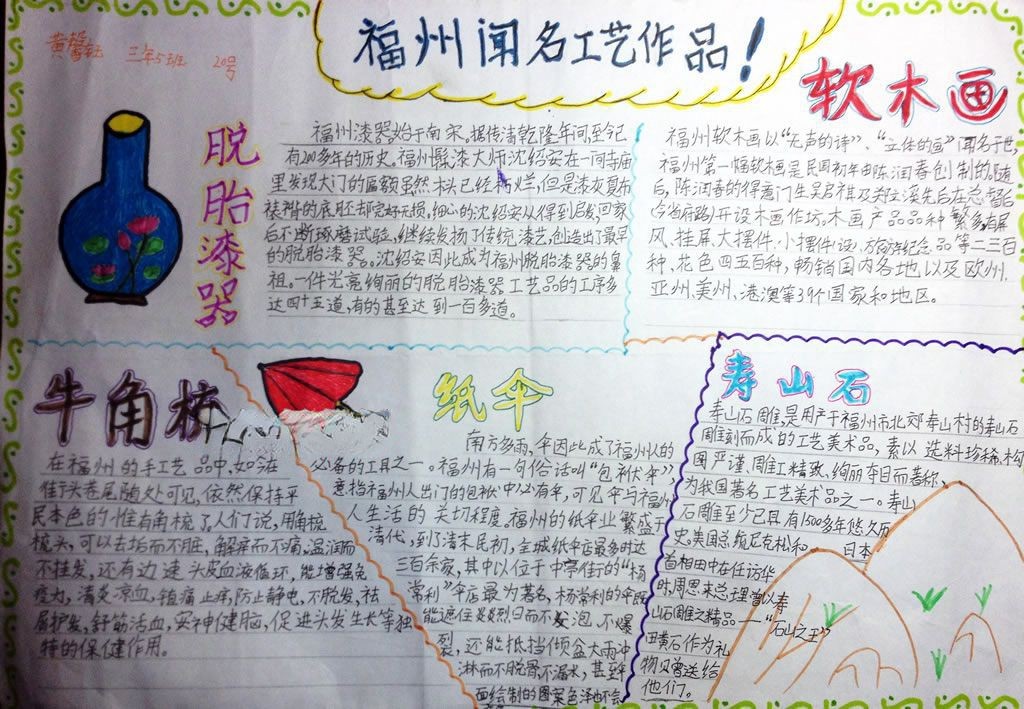 福州闻名工艺作品！
黄馨 三年5班 20号
脱胎漆器
福州漆器始于南宋。据传清乾隆年间,至今已
有200多年的历史。福州髹漆大师沈绍安在一间寺庙
里发现大门的匾额虽然木头已经 烂,但是漆灰夏布
裱褙的底胚却完好无损。细心的沈绍安从得到启发,回家
后不断琢磨试验,继续发扬了传统漆艺,创造出了最早
的脱胎漆器。沈绍安因此成为福州脱胎漆器的鼻
祖。一件光亮绚丽的脱胎漆器工艺品的工序多
达四十五道,有的甚至达到一百多道。
软木画
福州软木画以“无声的诗”、“立体的画”闻名于世,
福州第一幅软木画是民国初年由陈润春创制的。随
后,陈润春的得意门生吴启棋及郑立溪先后在总督
(今省府路)开设木画作坊。木画产品品种繁多,有屏
风、挂屏、大摆件、小摆件、设、旅游纪念品等二三百
种、花色四五百种,畅销国内各地以及欧州、
亚州、美州、港澳等39个国家和地区。
牛角梳
在福州的手工艺品中,如今在
街头巷尾随处可见,依然保持平
民本色的惟有角梳了,人们说,用角梳
梳头,可以去垢而不脏,解痒而不痛,温润而
不挂发,还有边速头皮血液循环,能增强免
疫力,清炎凉血,镇痛止痒,防止静电,不脱发,祛
屑护发,舒筋活血,安神健脑,促进头发生长等独
特的保健作用。
纸伞
南方多雨,伞因此成了福州人的
必备的工具之一。福州有一句俗话叫“包袱伞”,
意指福州人出门的包袱中必有伞,可见伞与福州
人生活的关切程度。福州的纸伞业繁盛于
清代,到了清末民初,全城纸伞店最多时达
三百余家,其中以位于中亭街的“杨
常利”伞店最为著名,杨常利的伞既
能遮住炎炎烈日而不发泡、不爆
裂,还能抵挡倾盆大雨冲
淋而不脱骨,不漏水,甚至伞
面绘制的图案色泽也不会
寿山石
寿山石雕,是用产于福州市北郊寿山村的寿山石
雕刻而成的工艺美术品,素以选料珍稀、构
图严谨、雕工精致、绚丽夺目而著称,
为我国著名工艺美术品之一。寿山
石雕至少已具有1500多年悠久历
史。美国总统尼克松和 日本
首相田中在任访华
时,周恩来总理曾以寿
山石雕之精品——“石山之王”
田黄石作为礼
物 曾送给
他们。